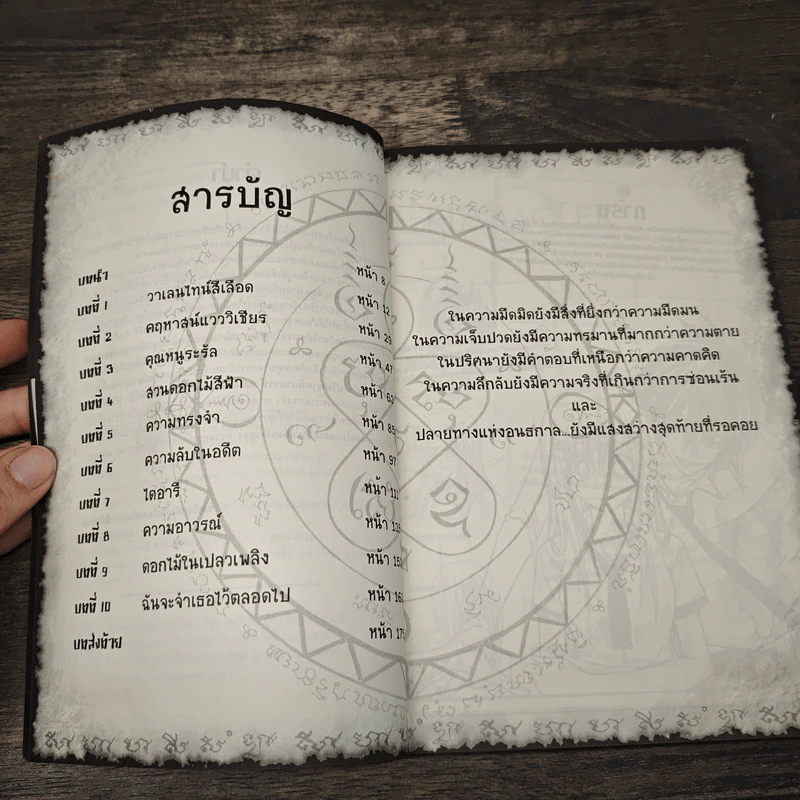 สารบัญ
บทนำ หน้า 8
บทที่ 1 วาเลนไทน์สีเลือด หน้า 12
บทที่ 2 คฤหาสน์แวววิเชียร หน้า 29
บทที่ 3 คุณหนูระรัล หน้า 47
บทที่ 4 สวนดอกไม้สีฟ้า หน้า 63
บทที่ 5 ความทรงจำ หน้า 85
บทที่ 6 ความลับในอดีต หน้า 97
บทที่ 7 ไดอารี หน้า
บทที่ 8 ความอาวรณ์ หน้า
บทที่ 9 ดอกไม้ในเปลวเพลิง หน้า
บทที่ 10 ฉันจะจำเธอไว้ตลอดไป หน้า
บทส่งท้าย หน้า
ในความมืดมิดยังมีสิ่งที่ยิ่งกว่าความมืดมน
ในความเจ็บปวดยังมีความทรมานที่มากกว่าความตาย
ในปริศนายังมีคำตอบที่เหนือกว่าความคาดคิด
ในความลึกลับยังมีความจริงที่เกินกว่าการซ่อนเร้น
และ
ปลายทางแห่งอนธกาล...ยังมีแสงสว่างสุดท้ายที่รอคอย